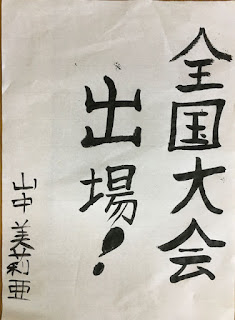 全国大会
出場!
山中美莉亜